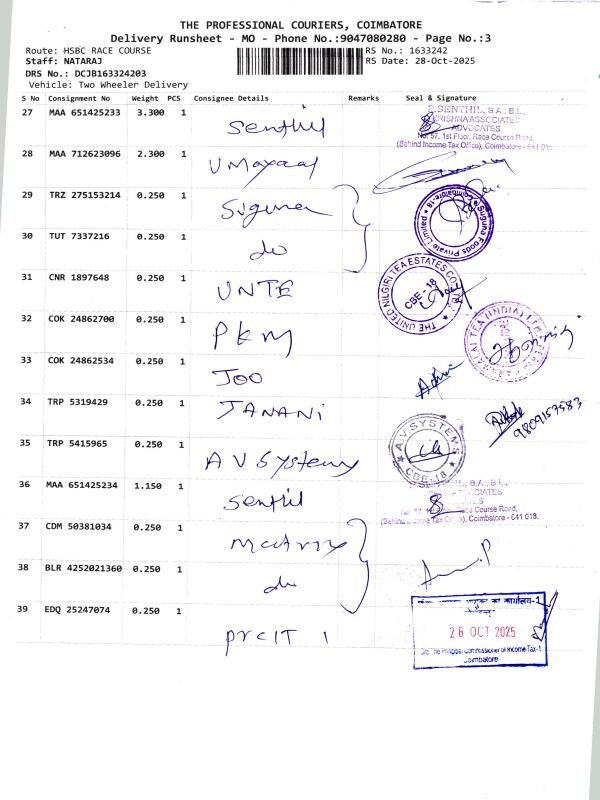 THE PROFESSIONAL COURIERS, COIMBATORE
Delivery Runsheet - MO - Phone No.:9047080280 - Page No.:3
Route: HSBC RACE COURSE RS No.: 1633242
Staff: NATARAJ RS Date: 28-Oct-2025
DRS No.: DCJB163324203
Vehicle: Two Wheeler Delivery
S No Consignment No Weight PCS Consignee Details Remarks Seal & Signature
27 MAA 651425233 3.300 1 Senthil P.SENTHIL, B.A., B.L.,
KRISHNA ASSOCIATES
ADVOCATES
No. 57, 1st Floor, Race Course Road,
(Behind Income Tax Office), Coimbatore - 641 018.
28 MAA 712623096 2.300 1
29 TRZ 275153214 0.250 1 Suguna
Suguna Foods Private Limited Coimbatore-18
30 TUT 7337216 0.250 1 do
31 CNR 1897648 0.250 1 UNTE
THE UNITED NILGIRI TEA ESTATES CO. LTD.
CBE-18
32 COK 24862700 0.250 1 PKM
TEA (INDIA) LIMITED
33 COK 24862534 0.250 1 JOO
34 TRP 5319429 0.250 1 JANANI
9809157583
35 TRP 5415965 0.250 1 AV Systems
A.V SYSTEMS
CBE-18
36 MAA 651425234 1.150 1 Senthil P.SENTHIL, B.A., B.L.,
ASSOCIATES
Race Course Road,
(Behind Income Tax Office), Coimbatore - 641 018.
37 CDM 50381034 0.250 1 Matrix
38 BLR 4252021360 0.250 1 do
39 EDQ 25247074 0.250 1 PrCIT 1
का कार्यालय-1
28 OCT 2025
Commissioner of Income Tax-1
Coimbatore